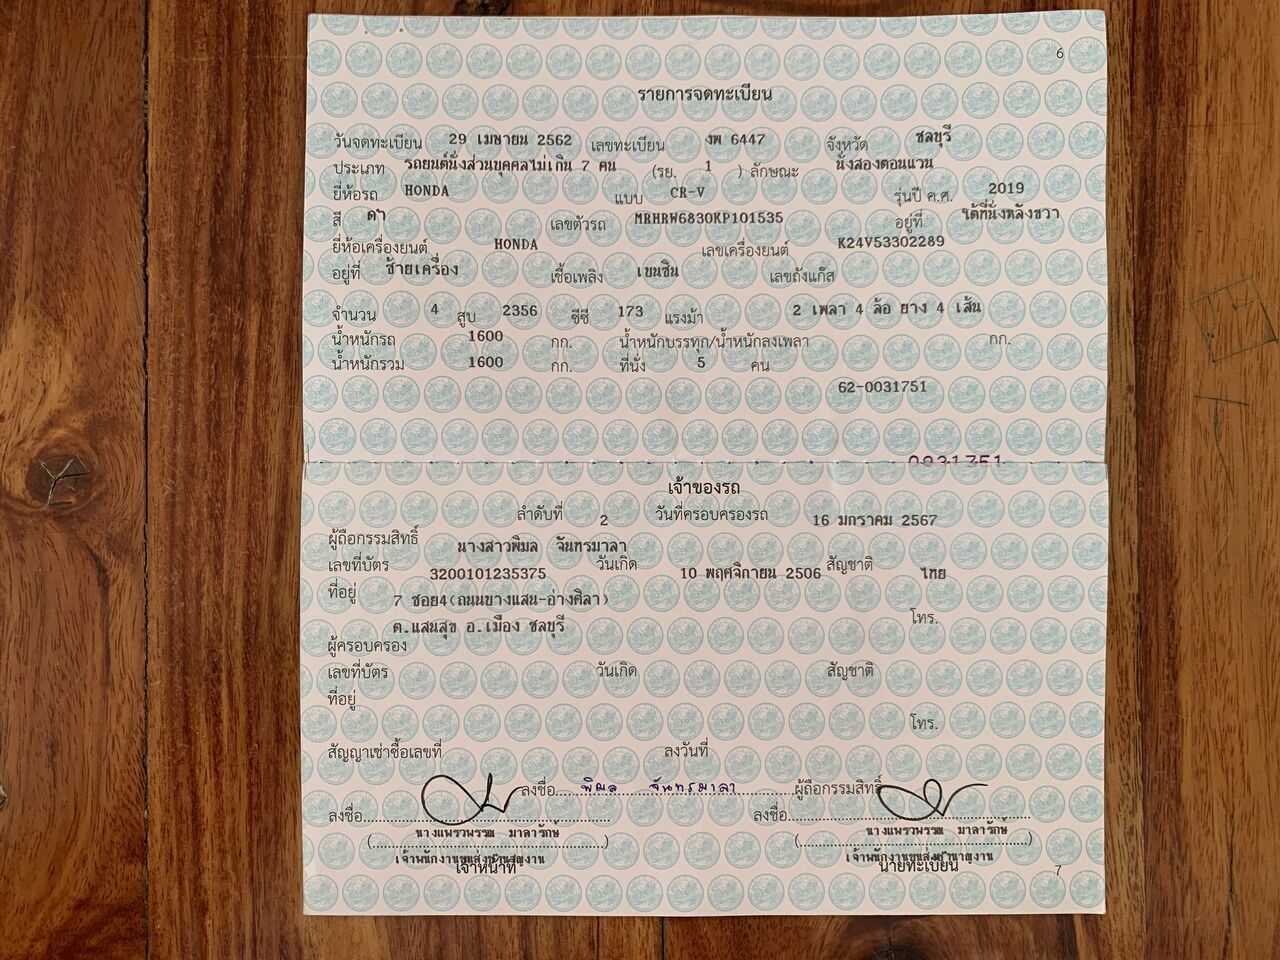 6
รายการจดทะเบียน
วันจดทะเบียน 29 เมษายน 2562 เลขทะเบียน งพ 6447 จังหวัด ชลบุรี
ประเภท รถยนต์นั่งส่วนบุคคลไม่เกิน 7 คน (รย. 1 ) ลักษณะ นั่งสองตอนแวน
ยี่ห้อรถ HONDA แบบ CR-V รุ่นปี ค.ศ. 2019
สี ดำ เลขตัวรถ MRHRW6830KP101535 อยู่ที่ ใต้ที่นั่งหลังขวา
ยี่ห้อเครื่องยนต์ HONDA เลขเครื่องยนต์ K24V53302289
อยู่ที่ ซ้ายเครื่อง เชื้อเพลิง เบนซิน เลขถังแก๊ส
จำนวน 4 สูบ 2356 ซีซี 173 แรงม้า 2 เพลา 4 ล้อ ยาง 4 เส้น
น้ำหนักรถ 1600 กก. น้ำหนักบรรทุก/น้ำหนักลงเพลา กก.
น้ำหนักรวม 1600 กก. ที่นั่ง 5 คน
62-0031751
0031751
เจ้าของรถ
ลำดับที่ 2 วันที่ครอบครองรถ 16 มกราคม 2567
ผู้ถือกรรมสิทธิ์ นางสาวพิมล จันทรมาลา
เลขที่บัตร 3200101235375 วันเกิด 10 พฤศจิกายน 2506 สัญชาติ ไทย
ที่อยู่ 7 ซอย4(ถนนบางแสน-อ่างศิลา)
ต.แสนสุข อ.เมือง ชลบุรี โทร.
ผู้ครอบครอง
เลขที่บัตร วันเกิด สัญชาติ
ที่อยู่
โทร.
สัญญาเช่าซื้อเลขที่ ลงวันที่
ลงชื่อ พิมล จันทรมาลา ผู้ถือกรรมสิทธิ์
ลงชื่อ ลงชื่อ
(นางแพรวพรรณ มาลารักษ์) (นางแพรวพรรณ มาลารักษ์)
เจ้าพนักงานขนส่งชำนาญงาน เจ้าพนักงานขนส่งชำนาญงาน
เจ้าหน้าที่ นายทะเบียน 7